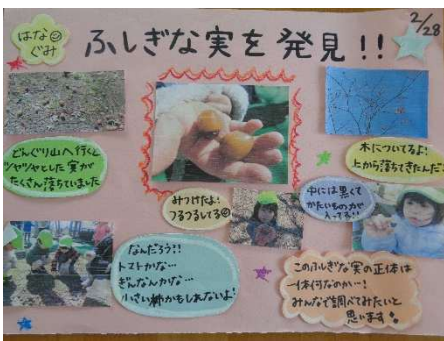 はな
ぐみ
ふしぎな実を発見!!
2/28
どんぐり山へ行くと
ツヤツヤとした実が
たくさん落ちていました
木についてるよ!
上から落ちてきたんだ!
みつけたよ!
つるつるしてる
中には黒くて
かたいものが
入ってる!!
なんだろう!?
トマトかな…
ぎんなんかな…
小さい柿かもしれないよ!
このふしぎな実の正体は
一体何なのか…!
みんなで調べてみたいと
思います!